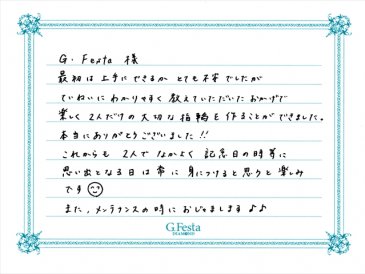 G. Festa 様
最初は上手にできるか とても不安でしたが
ていねいに わかりやすく 教えていただいた おかげで
楽しく 2人だけの 大切な 指輪を 作ることが できました。
本当に ありがとう ございました!!
これからも 2人で なかよく 記念日の時等に
思い出となる日は 常に 身につけると思うと 楽しみ
です
また、メンテナンスの時に おじゃまします♪♪
G.Festa
DIAMOND